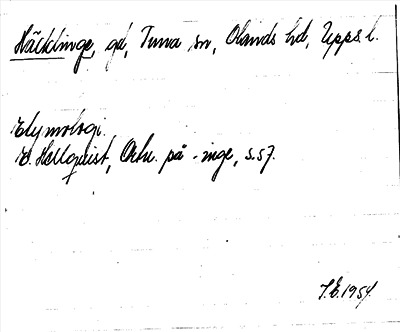 Häcklinge, gd, Tuna sn, Olands hd, Upps. l.
Etymologi.
E. Hellquist, Ortn. på -inge, s. 57.
J.E. 1954.